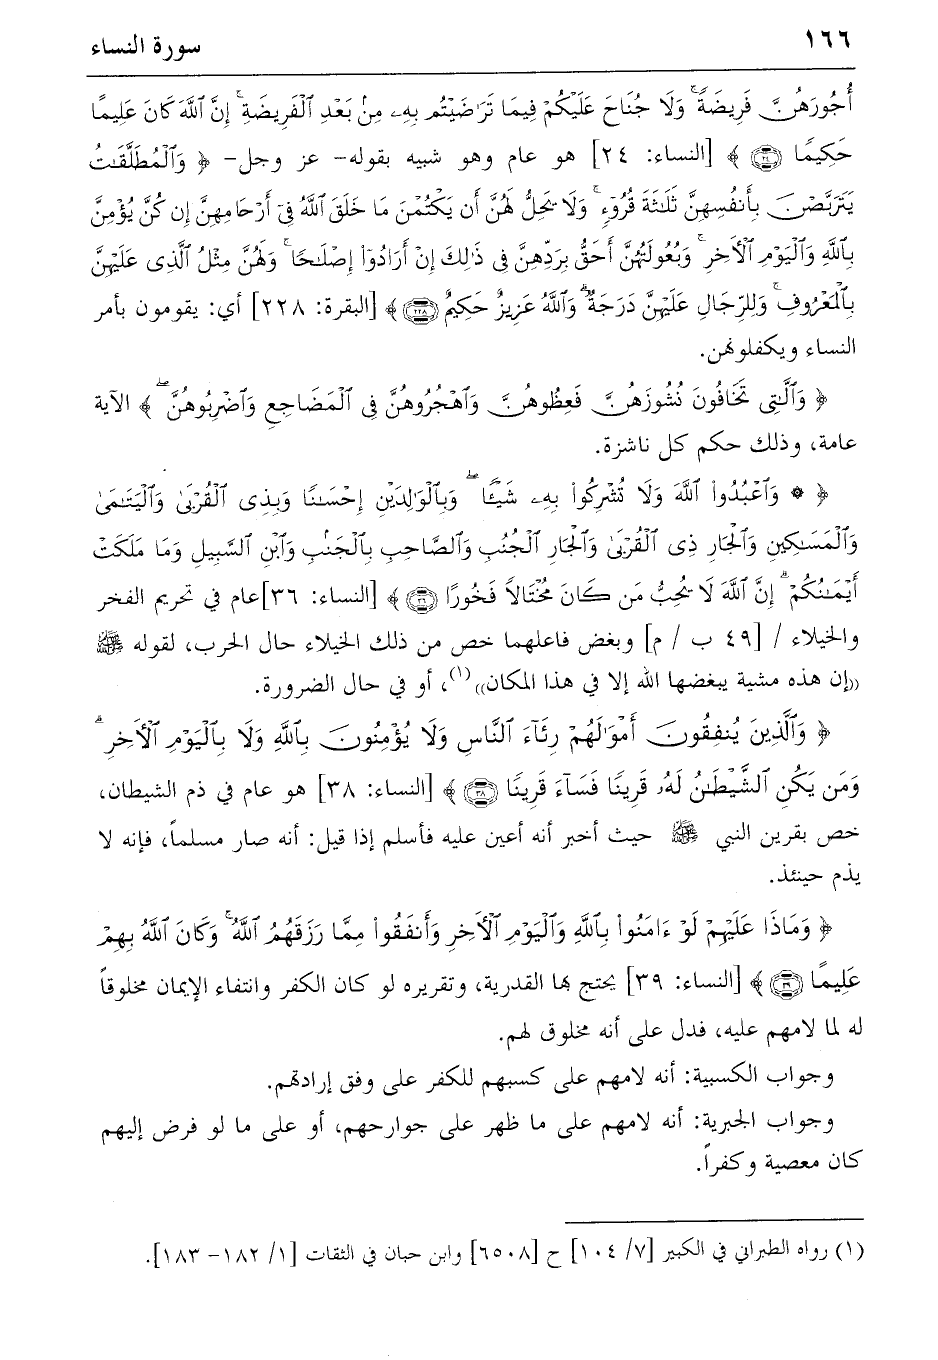 ١٦٦ سورة النساء
أُجُورَهُنَّ فَرِيضَةً ۚ وَلَا جُنَاحَ عَلَيْكُمْ فِيمَا تَرَٰضَيْتُم بِهِۦ مِنۢ بَعْدِ ٱلْفَرِيضَةِ ۚ إِنَّ ٱللَّهَ كَانَ عَلِيمًا
حَكِيمًا ﴿٢٤﴾ ﴾ [النساء: ٢٤] هو عام وهو شبيه بقوله- عز وجل- ﴿ وَٱلْمُطَلَّقَٰتُ
يَتَرَبَّصْنَ بِأَنفُسِهِنَّ ثَلَٰثَةَ قُرُوٓءٍ ۚ وَلَا يَحِلُّ لَهُنَّ أَن يَكْتُمْنَ مَا خَلَقَ ٱللَّهُ فِىٓ أَرْحَامِهِنَّ إِن كُنَّ يُؤْمِنَّ
بِٱللَّهِ وَٱلْيَوْمِ ٱلْأَخِرِ ۚ وَبُعُولَتُهُنَّ أَحَقُّ بِرَدِّهِنَّ فِى ذَٰلِكَ إِنْ أَرَادُوٓا۟ إِصْلَٰحًا ۚ وَلَهُنَّ مِثْلُ ٱلَّذِى عَلَيْهِنَّ
بِٱلْمَعْرُوفِ ۚ وَلِلرِّجَالِ عَلَيْهِنَّ دَرَجَةٌ ۗ وَٱللَّهُ عَزِيزٌ حَكِيمٌ ﴿٢٢٨﴾ ﴾ [البقرة: ٢٢٨] أي: يقومون بأمر
النساء ويكفلونهن.
﴿ وَٱلَّٰتِى تَخَافُونَ نُشُوزَهُنَّ فَعِظُوهُنَّ وَٱهْجُرُوهُنَّ فِى ٱلْمَضَاجِعِ وَٱضْرِبُوهُنَّ ۖ ﴾ الآية
عامة، وذلك حكم كل ناشزة.
﴿ ۞ وَٱعْبُدُوا۟ ٱللَّهَ وَلَا تُشْرِكُوا۟ بِهِۦ شَيْـًٔا ۖ وَبِٱلْوَٰلِدَيْنِ إِحْسَٰنًا وَبِذِى ٱلْقُرْبَىٰ وَٱلْيَتَٰمَىٰ
وَٱلْمَسَٰكِينِ وَٱلْجَارِ ذِى ٱلْقُرْبَىٰ وَٱلْجَارِ ٱلْجُنُبِ وَٱلصَّاحِبِ بِٱلْجَنۢبِ وَٱبْنِ ٱلسَّبِيلِ وَمَا مَلَكَتْ
أَيْمَٰنُكُمْ ۗ إِنَّ ٱللَّهَ لَا يُحِبُّ مَن كَانَ مُخْتَالًا فَخُورًا ﴿٣٦﴾ ﴾ [النساء: ٣٦]عام في تحريم الفخر
والخيلاء / [٤٩ ب / م] وبغض فاعلهما خص من ذلك الخيلاء حال الحرب، لقوله ﷺ
«إن هذه مشية يبغضها الله إلا في هذا المكان»(١)، أو في حال الضرورة.
﴿ وَٱلَّذِينَ يُنفِقُونَ أَمْوَٰلَهُمْ رِئَآءَ ٱلنَّاسِ وَلَا يُؤْمِنُونَ بِٱللَّهِ وَلَا بِٱلْيَوْمِ ٱلْأَخِرِ ۗ
وَمَن يَكُنِ ٱلشَّيْطَٰنُ لَهُۥ قَرِينًا فَسَآءَ قَرِينًا ﴿٣٨﴾ ﴾ [النساء: ٣٨] هو عام في ذم الشيطان،
خص بقرين النبي ﷺ حيث أخبر أنه أعين عليه فأسلم إذا قيل: أنه صار مسلماً، فإنه لا
يذم حينئذ.
﴿ وَمَاذَا عَلَيْهِمْ لَوْ ءَامَنُوا۟ بِٱللَّهِ وَٱلْيَوْمِ ٱلْأَخِرِ وَأَنفَقُوا۟ مِمَّا رَزَقَهُمُ ٱللَّهُ ۚ وَكَانَ ٱللَّهُ بِهِمْ
عَلِيمًا ﴿٣٩﴾ ﴾ [النساء: ٣٩] يحتج بها القدرية، وتقريره لو كان الكفر وانتفاء الإيمان مخلوقاً
له لما لامهم عليه، فدل على أنه مخلوق لهم.
وجواب الكسبية: أنه لامهم على كسبهم للكفر على وفق إرادتهم.
وجواب الجبرية: أنه لامهم على ما ظهر على جوارحهم، أو على ما لو فرض إليهم
كان معصية وكفراً.
(١) رواه الطبراني في الكبير [٧/ ١٠٤] ح [٦٥٠٨] وابن حبان في الثقات [١/ ١٨٢- ١٨٣].